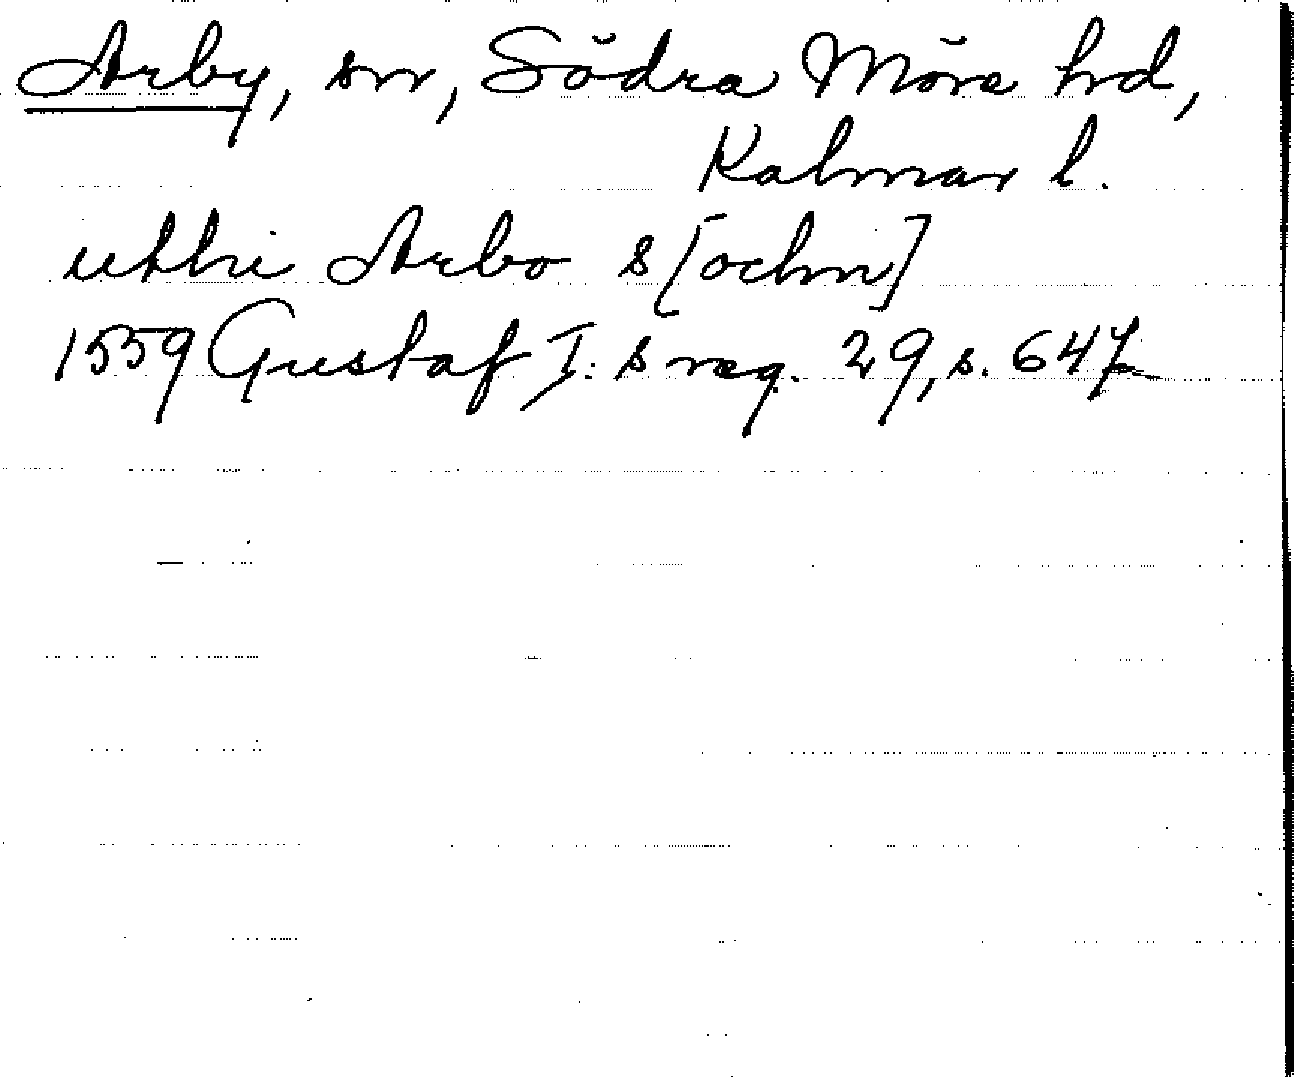 Arby, sn, Södra Möre hd,
Kalmar l.
uthi Arbo s[ochn]
1559 Gustaf I:s reg. 29, s. 647